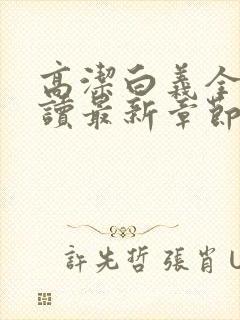 高潔白義全
讀最新章節
許先哲 張肖 U